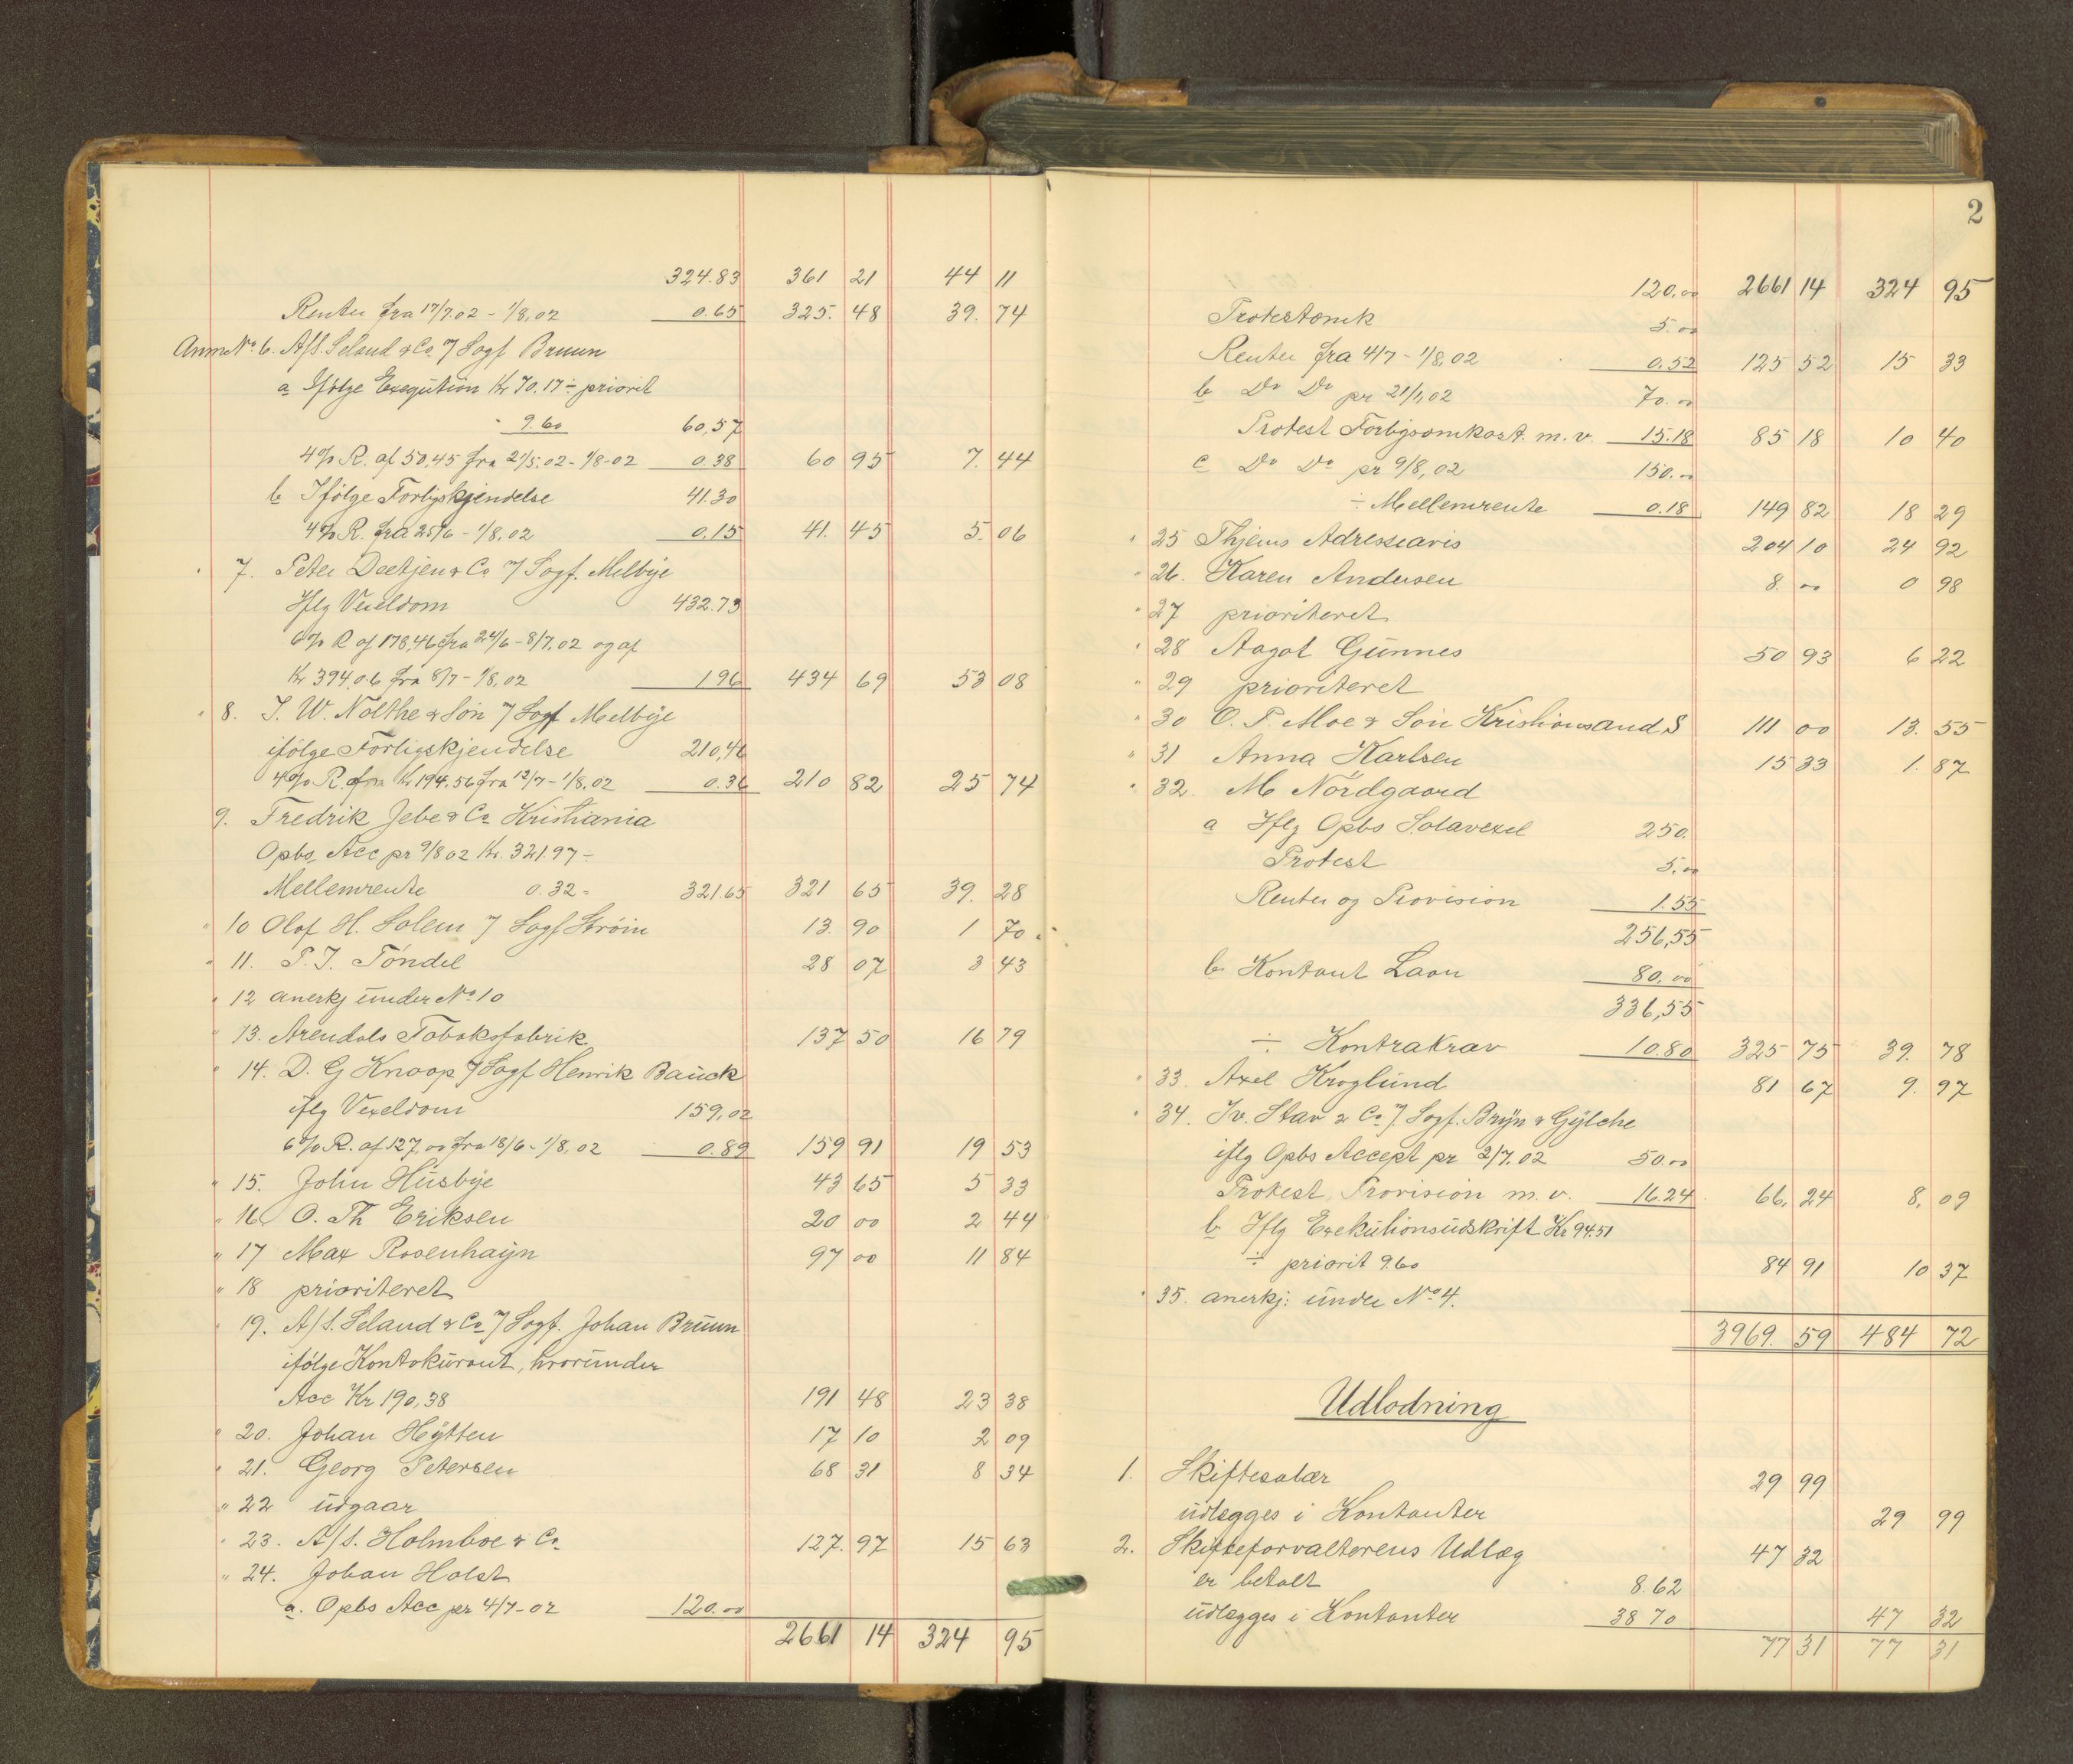 324.83 361 21 44 11
Renter fra 17/7.02 - 1/8.02 0.65 325. 48 39. 74
Anm No. 6. A/S. Seland & Co. v/ Sagf Bruun
a Ifølge Exegution Kr 70.17 ÷ priorit
" 9.60 60,57
4% R. af 50.45 fra 21/5.02 - 1/8-02 0.38 60 95 7. 44
b Ifølge Forligskjendelse 41.30
4% R. fra 25/6 - 1/8.02 0.15 41. 45 5. 06
" 7. Peter Deetjen & Co v/ Sagf. Melbye
Iflg Vexeldom 432.73
6% R af 178,46 fra 24/6 - 8/7.02 og af
Kr 394.06 fra 8/7 - 1/8.02 1.96 434 69 53 08
" 8. J. W. Nolthe & Søn v/ Sagf Melbye
ifølge Forligskjendelse 210,46
4% R. fra Kr 194.56 fra 13/7 - 1/8.02 0.36 210 82 25 74
9. Fredrik Jebe & Co Kristiania
Opbs. Acc pr 9/8 02 Kr. 321.97 ÷
Mellemrente 0.32 = 321.65 321 65 39. 28
" 10 Olaf H. Solem v/ Sagf Strøm 13. 90 1 70.
" 11. P. J. Tøndel 28 07 3 43
" 12 anerkj under No 10
" 13. Arendals Tobaksfabrik 137 50 16 79
" 14. D. G Knoop v/ Sagf Henrik Bauck
iflg Vexeldom 159,02
6% R. af 127,00 fra 18/6 - 1/8.02 0.89 159 91 19 53
" 15. John Husbye 43 65 5 33
" 16 O. Th Eriksen 20 00 2 44
" 17 Max Rosenhayn 97 00 11 84
" 18 prioriteret
" 19. A/S. Seland & Co v/ Sagf. Johan Bruun
ifølge Kontokurant, hvorunder
Acc Kr 190,38 191 48 23 38
" 20. Johan Hytten 17 10 2 09
" 21. Georg Petersen 68 31 8 34
" 22 udgaar
" 23. A/S. Holmboe & Co. 127. 97 15 63
" 24. Johan Holst
a. Opbs Acc pr 4/7-02 120.00
2661 14 324 95
2
120.00 2661 14 324 95
Protestomk 5.00
Renter fra 4/7 - 1/8.02 0.52 125 52 15 33
b Do Do pr 21/1,02 70.00
Protest Forligsomkost. m. v. 15.18 85 18 10 40
c Do Do pr 9/8,02 150.00
÷ Mellemrente 0.18 149 82 18 29
" 25 Thjems Adresseavis 204 10 24 92
" 26. Karen Andersen 8. 00 0 98
" 27 prioriteret
" 28 Aagot Gunnes 50 93 6 22
" 29 prioriteret
" 30 O. P. Moe & Søn Kristiansand S 111 00 13. 55
" 31 Anna Karlsen 15 33 1. 87
" 32. M Nordgaard
a Iflg Opbs Solavexel 250.
Protest 5.00
Renter og Provision 1.55
256,55
b Kontant Laan 80,00
336,55
÷ Kontrakrav 10.80 325 75 39. 78
" 33. Axel Kroglund 81 67 9. 97
" 34. Iv. Stav & Co v/ Sagf. Bryn & Gylche
iflg Opbs Accept pr 2/7.02 50.00
Protest, Provision m. v. 16.24 66. 24 8. 09
b Iflg Exekutionsudskrift Kr 94.51
÷ priorit 9.60 84 91 10 37
" 35. anerkj: under No 4.
3969. 59 484 72
Udlodning
1. Skiftesalær 29 99
udlægges i Kontanter 29 99
2. Skifteforvalterens Udlæg 47 32
er betalt 8.62
udlægges i Kontanter 38 70 47 32
77 31 77 31